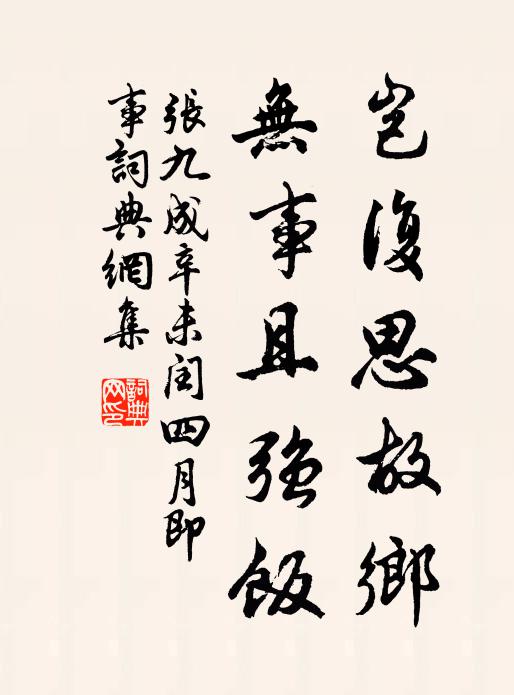 岂復思故鄉
無事且強飯
張九成辛未閏四月即
事詞典網集
詞典
网印